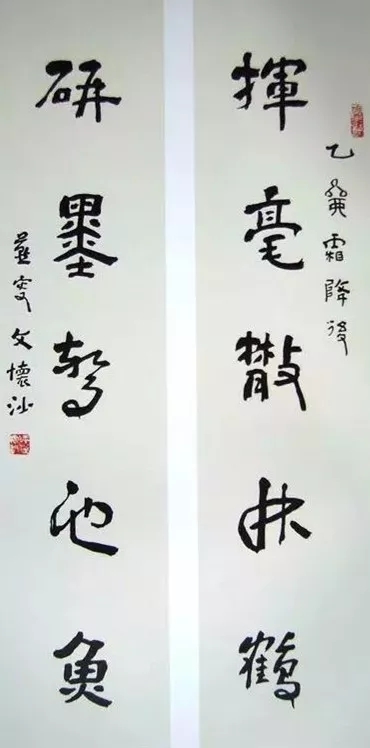 乙霜降後
揮毫散林鶴
研墨驚池魚
燕叟文懷沙